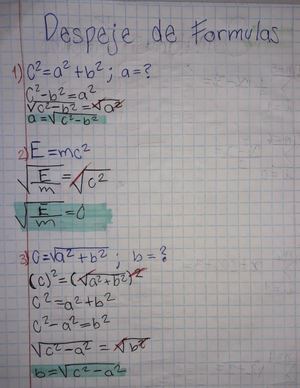 Despeje de Formulas
1) C²=a²+b² ; a=?
C²-b²=a²
√C²-b²=√a²
a=√C²-b²
2) E=mc²
√E/m=√C²
√E/m=C
3) C=√a²+b² ; b=?
(C)²=(√a²+b²)²
C²=a²+b²
C²-a²=b²
√C²-a²=√b²
b=√C²-a²